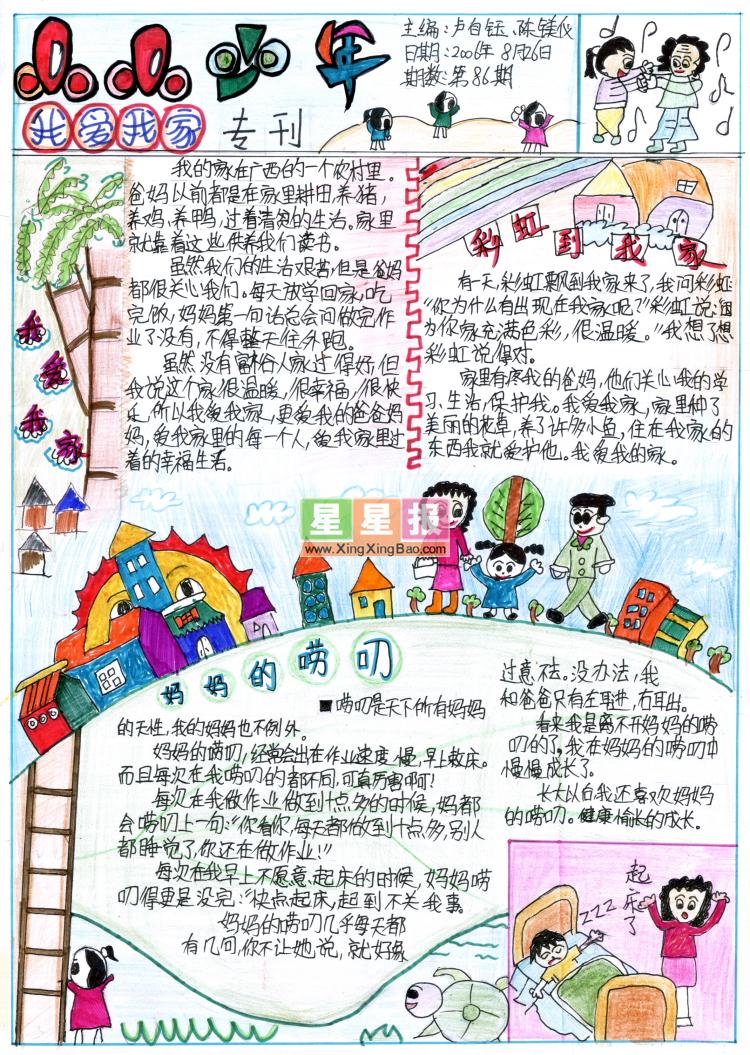 小小少年
主编:卢自钰、陈镁仪
日期:2006年8月26日
期数:第86期
我爱我家 专刊
我的家在广西的一个农村里。
爸妈以前都是在家里耕田,养猪,
养鸡,养鸭,过着清贫的生活。家里
就靠着这些,供养我们读书。
虽然我们的生活艰苦,但是爸妈
都很关心我们。每天放学回家,吃
完饭,妈妈第一句话总会问做完作
业了没有,不得整天往外跑。
虽然没有富裕人家过得好,但
我说这个家很温暖,很幸福,很快
乐,所以我爱我家,更爱我的爸爸妈
妈,爱我家里的每一个人,爱我家里过
着的幸福生活。
我爱我家
彩虹到我家
有一天,彩虹飘到我家来了,我问彩虹:
“你为什么有出现在我家呢?”彩虹说:“因
为你家充满色彩,很温暖。”我想了想
彩虹说得对。
家里有疼我的爸妈,他们关心我的学
习、生活,保护我。我爱我家,家里种了
美丽的花草,养了许多小鱼,住在我家的
东西我就爱护他。我爱我的家。
星星报
www.XingXingBao.com
妈妈的唠叨
■唠叨是天下所有妈妈
的天性,我的妈妈也不例外。
妈妈的唠叨,经常会出在作业速度慢,早上救床。
而且每次在我唠叨的都不同,可真厉害啊!
每次在我做作业做到十点多的时候,妈都
会唠叨上一句:“你看你,每天都做到十点多,别人
都睡觉了,你还在做作业!”
每次在我早上不愿意起床的时候,妈妈唠
叨得更是没完:“快点起床,起到不关我事。
妈妈的唠叨几乎每天都
有几回,你不让她说,就好象
过意不去。没办法,我
和爸爸只有左耳进,右耳出。
看来我是离不开妈妈的唠
叨的了。我在妈妈的唠叨中
慢慢成长了。
长大以后我还喜欢妈妈
的唠叨。健康愉长的成长。
起床了
ZZZ